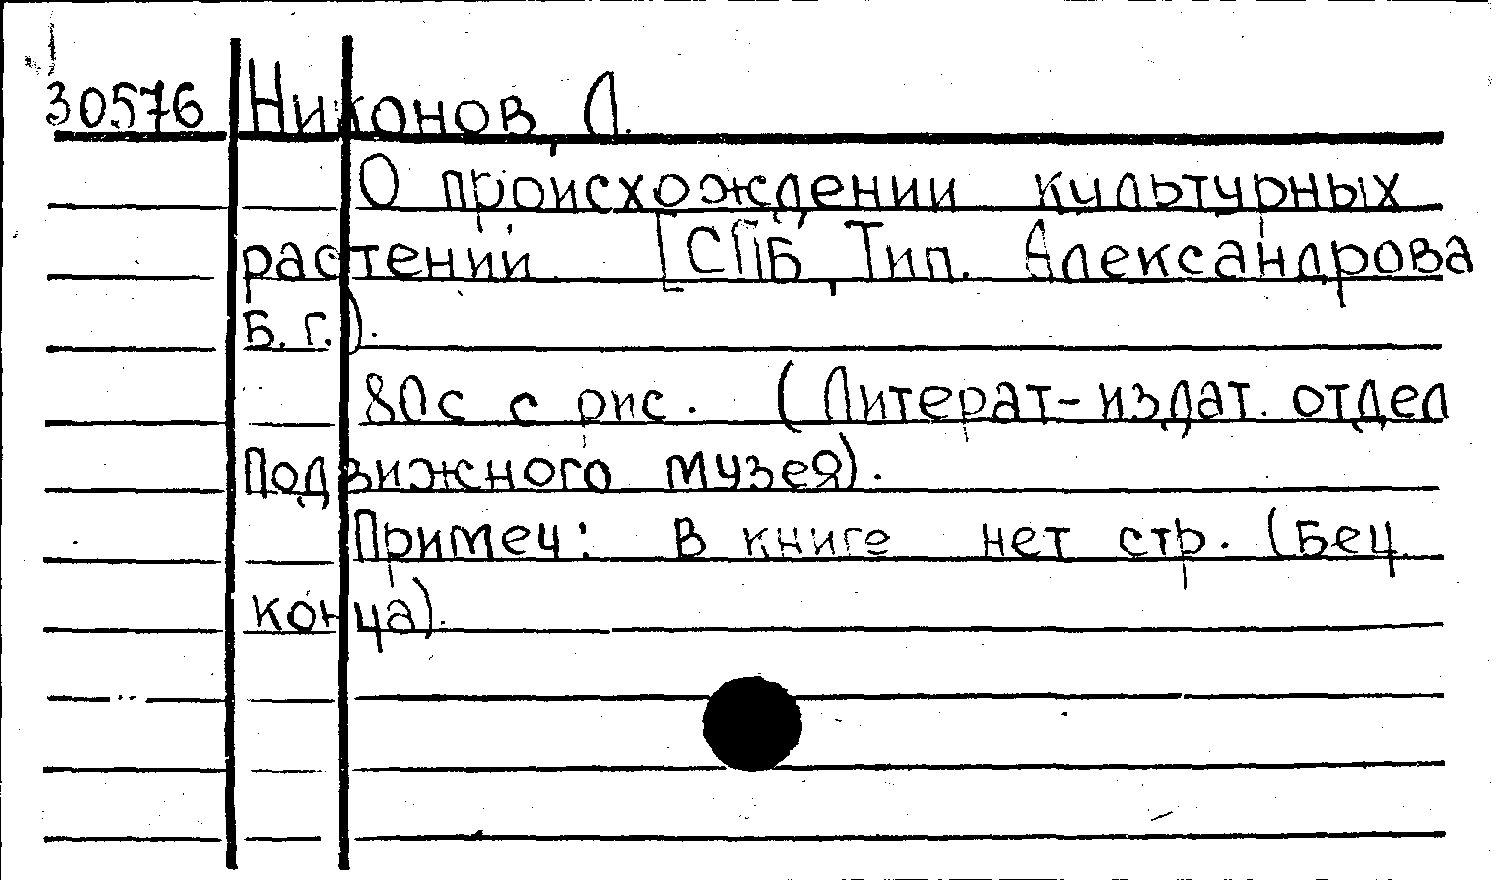 30576 Никонов, Л.
О происхождении культурных
растений. [СПБ, Тип. Александрова
Б. г.).
80с с рис. (Литерат-издат. отдел
Подвижного музея).
Примеч: В книге нет стр. (Бец
конца).